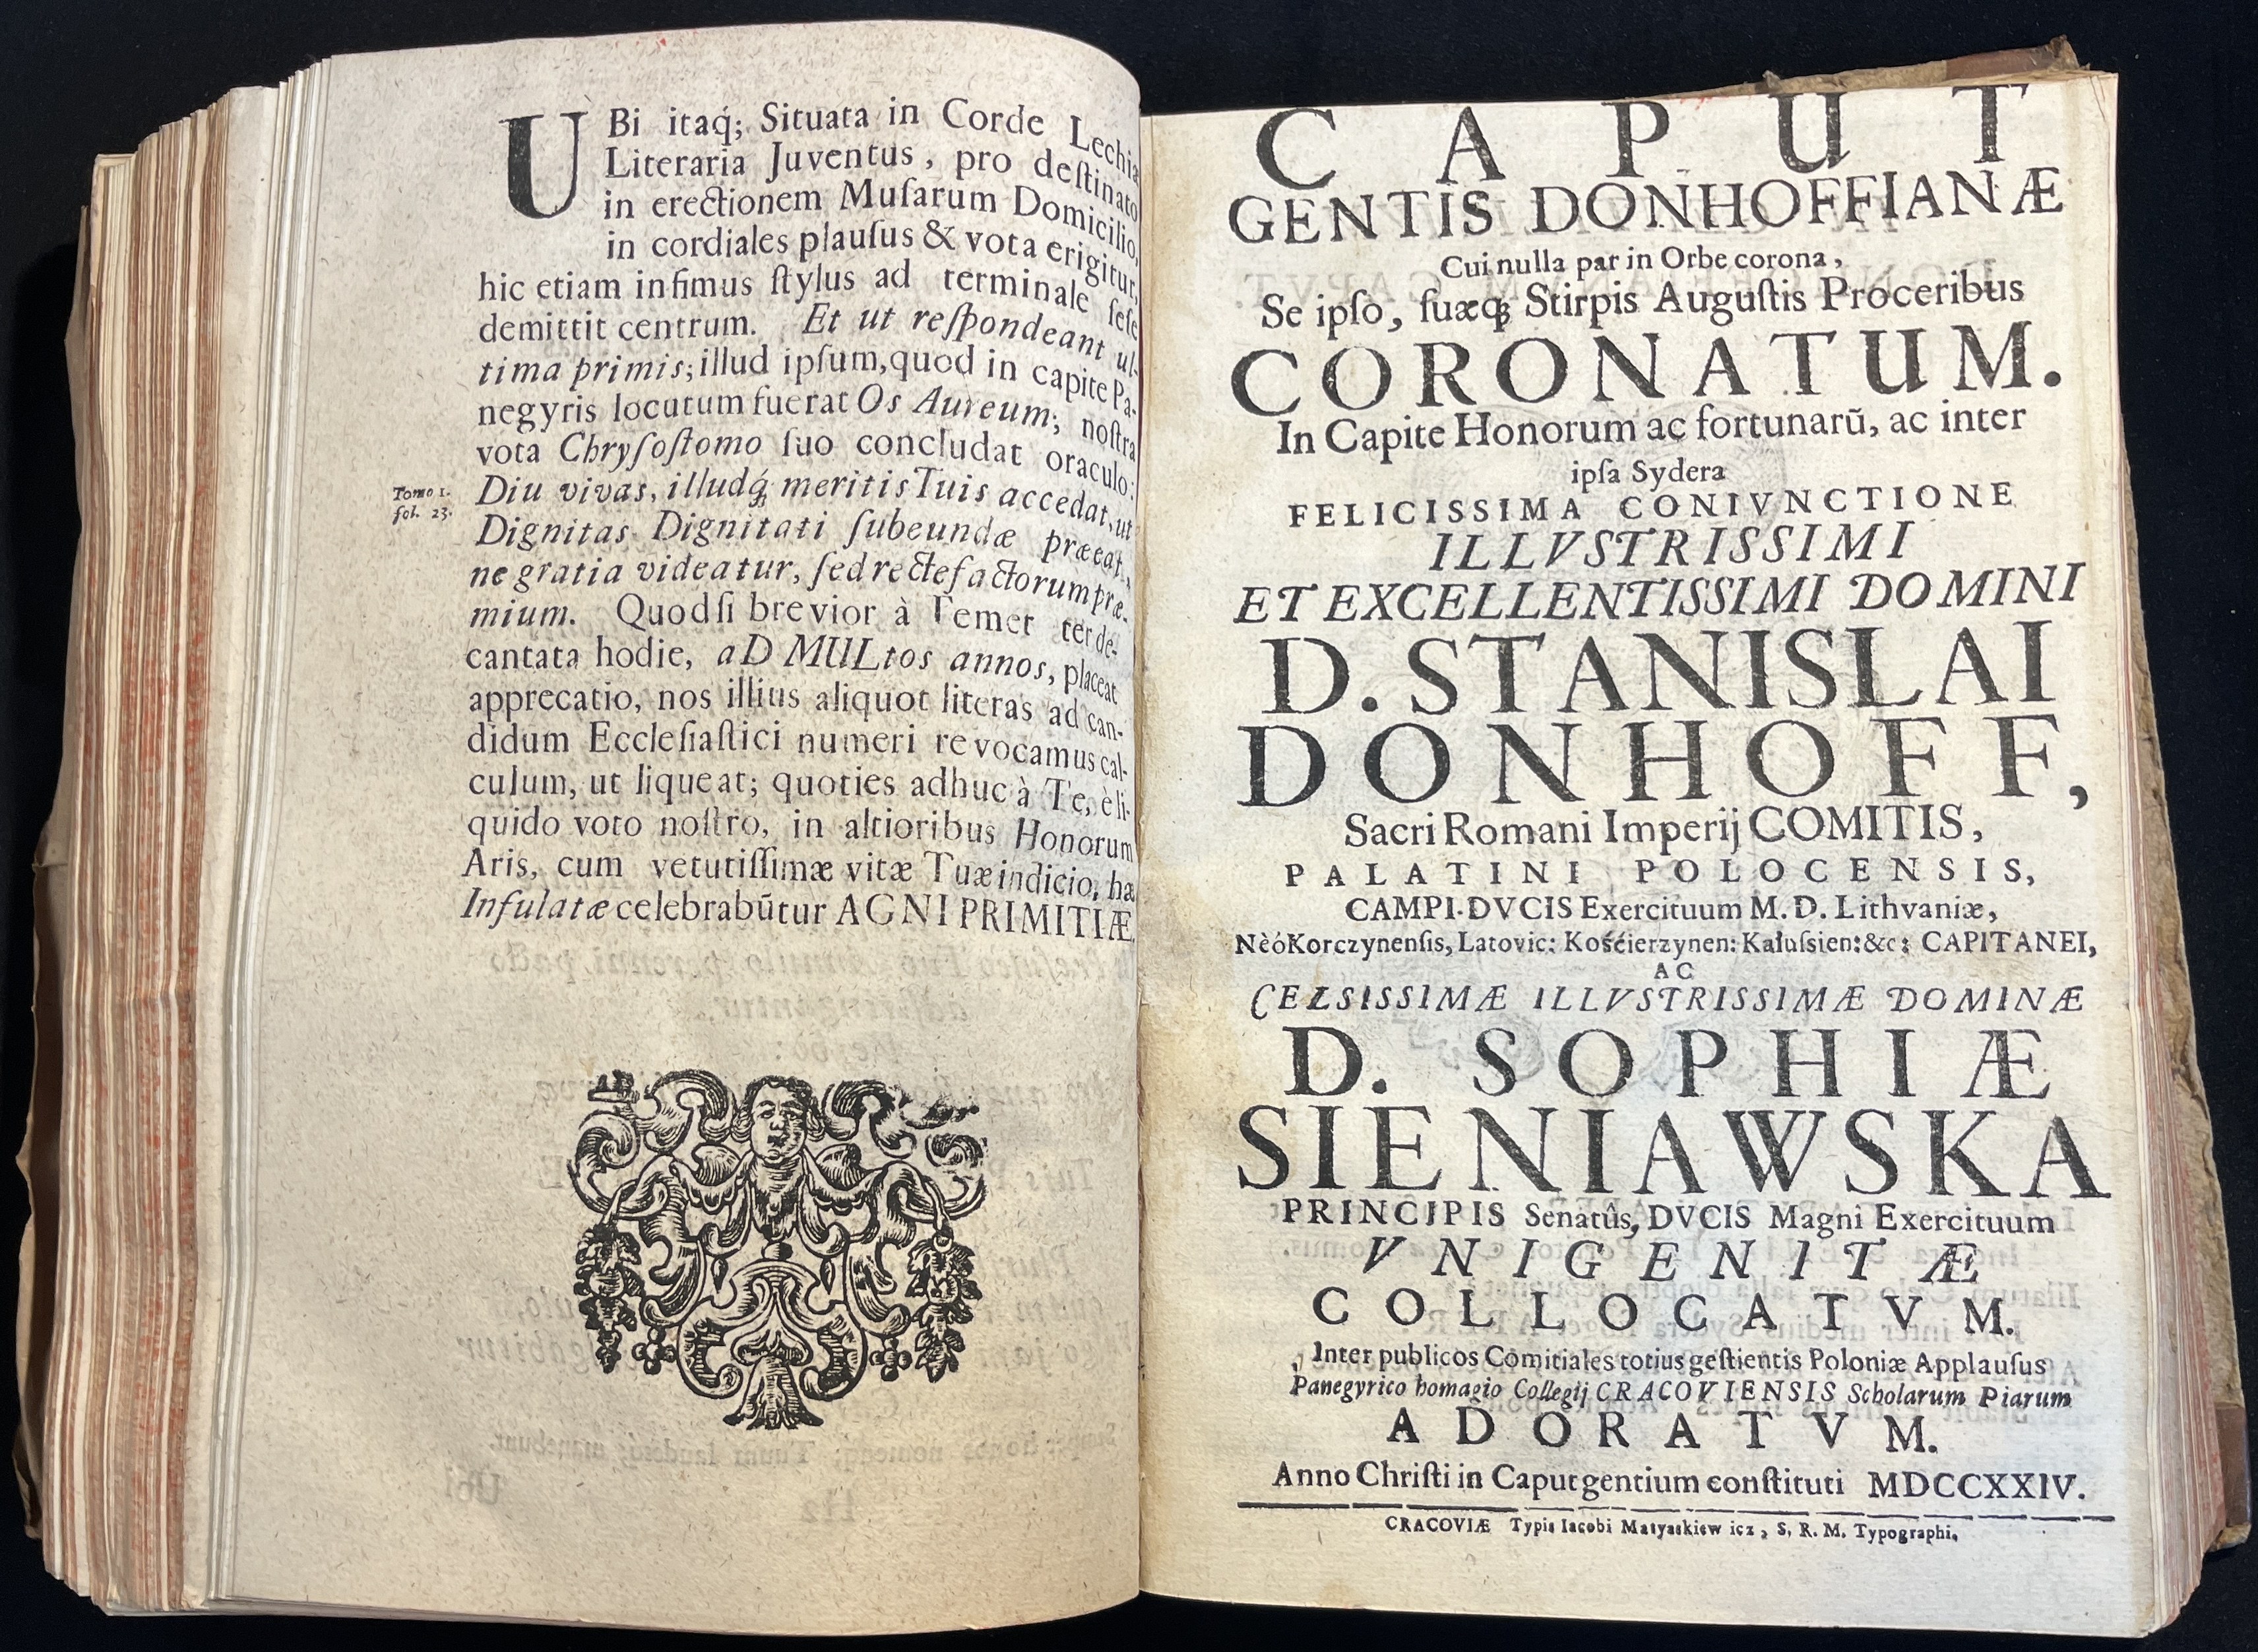 UBi itaq́; Situata in Corde Lechiæ
Literaria Juventus, pro deſtinato
in erectionem Muſarum Domicilio,
in cordiales plauſus & vota erigitur,
hic etiam infimus ſtylus ad terminale ſeſe
demittit centrum. Et ut reſpondeant ul-
tima primis; illud ipſum, quod in capite Pa-
negyris locutum fuerat Os Aureum; noſtra
vota Chryſoſtomo ſuo concludat oraculo:
Tomo 1.
fol. 23.
Diu vivas, illudq́; meritis Tuis accedat, ut
Dignitas Dignitati ſubeundæ præeat,
ne gratia videatur, ſed rectefactorum præ-
mium. Quodſi brevior à Temet ter de-
cantata hodie, aD MULtos annos, placeat
apprecatio, nos illius aliquot literas ad can-
didum Eccleſiaſtici numeri revocamus cal-
culum, ut liqueat; quoties adhuc à Te, è li-
quido voto noſtro, in altioribus Honorum
Aris, cum vetutiſſimæ vitæ Tuæ indicio, hæ
Infulatæ celebrabūtur AGNI PRIMITIÆ.
CAPUT
GENTIS DONHOFFIANÆ
Cui nulla par in Orbe corona,
Se ipſo, ſuæq; Stirpis Auguſtis Proceribus
CORONATUM.
In Capite Honorum ac fortunarū, ac inter
ipſa Sydera
FELICISSIMA CONIVNCTIONE
ILLVSTRISSIMI
ET EXCELLENTISSIMI DOMINI
D. STANISLAI
DONHOFF,
Sacri Romani Imperij COMITIS,
PALATINI POLOCENSIS,
CAMPI-DVCIS Exercituum M. D. Lithvaniæ,
NèóKorczynenſis, Latovic: Kośćierzynen: Kałuſsien: &c: CAPITANEI,
AC
CELSISSIMÆ ILLVSTRISSIMÆ DOMINÆ
D. SOPHIÆ
SIENIAWSKA
PRINCIPIS Senatûs, DVCIS Magni Exercituum
VNIGENITÆ
COLLOCATVM.
Inter publicos Comitiales totius geſtientis Poloniæ Applauſus
Panegyrico homagio Collegij CRACOVIENSIS Scholarum Piarum
ADORATVM.
Anno Chriſti in Caput gentium conſtituti MDCCXXIV.
CRACOVIÆ Typis Iacobi Matyaskiewicz, S. R. M. Typographi.